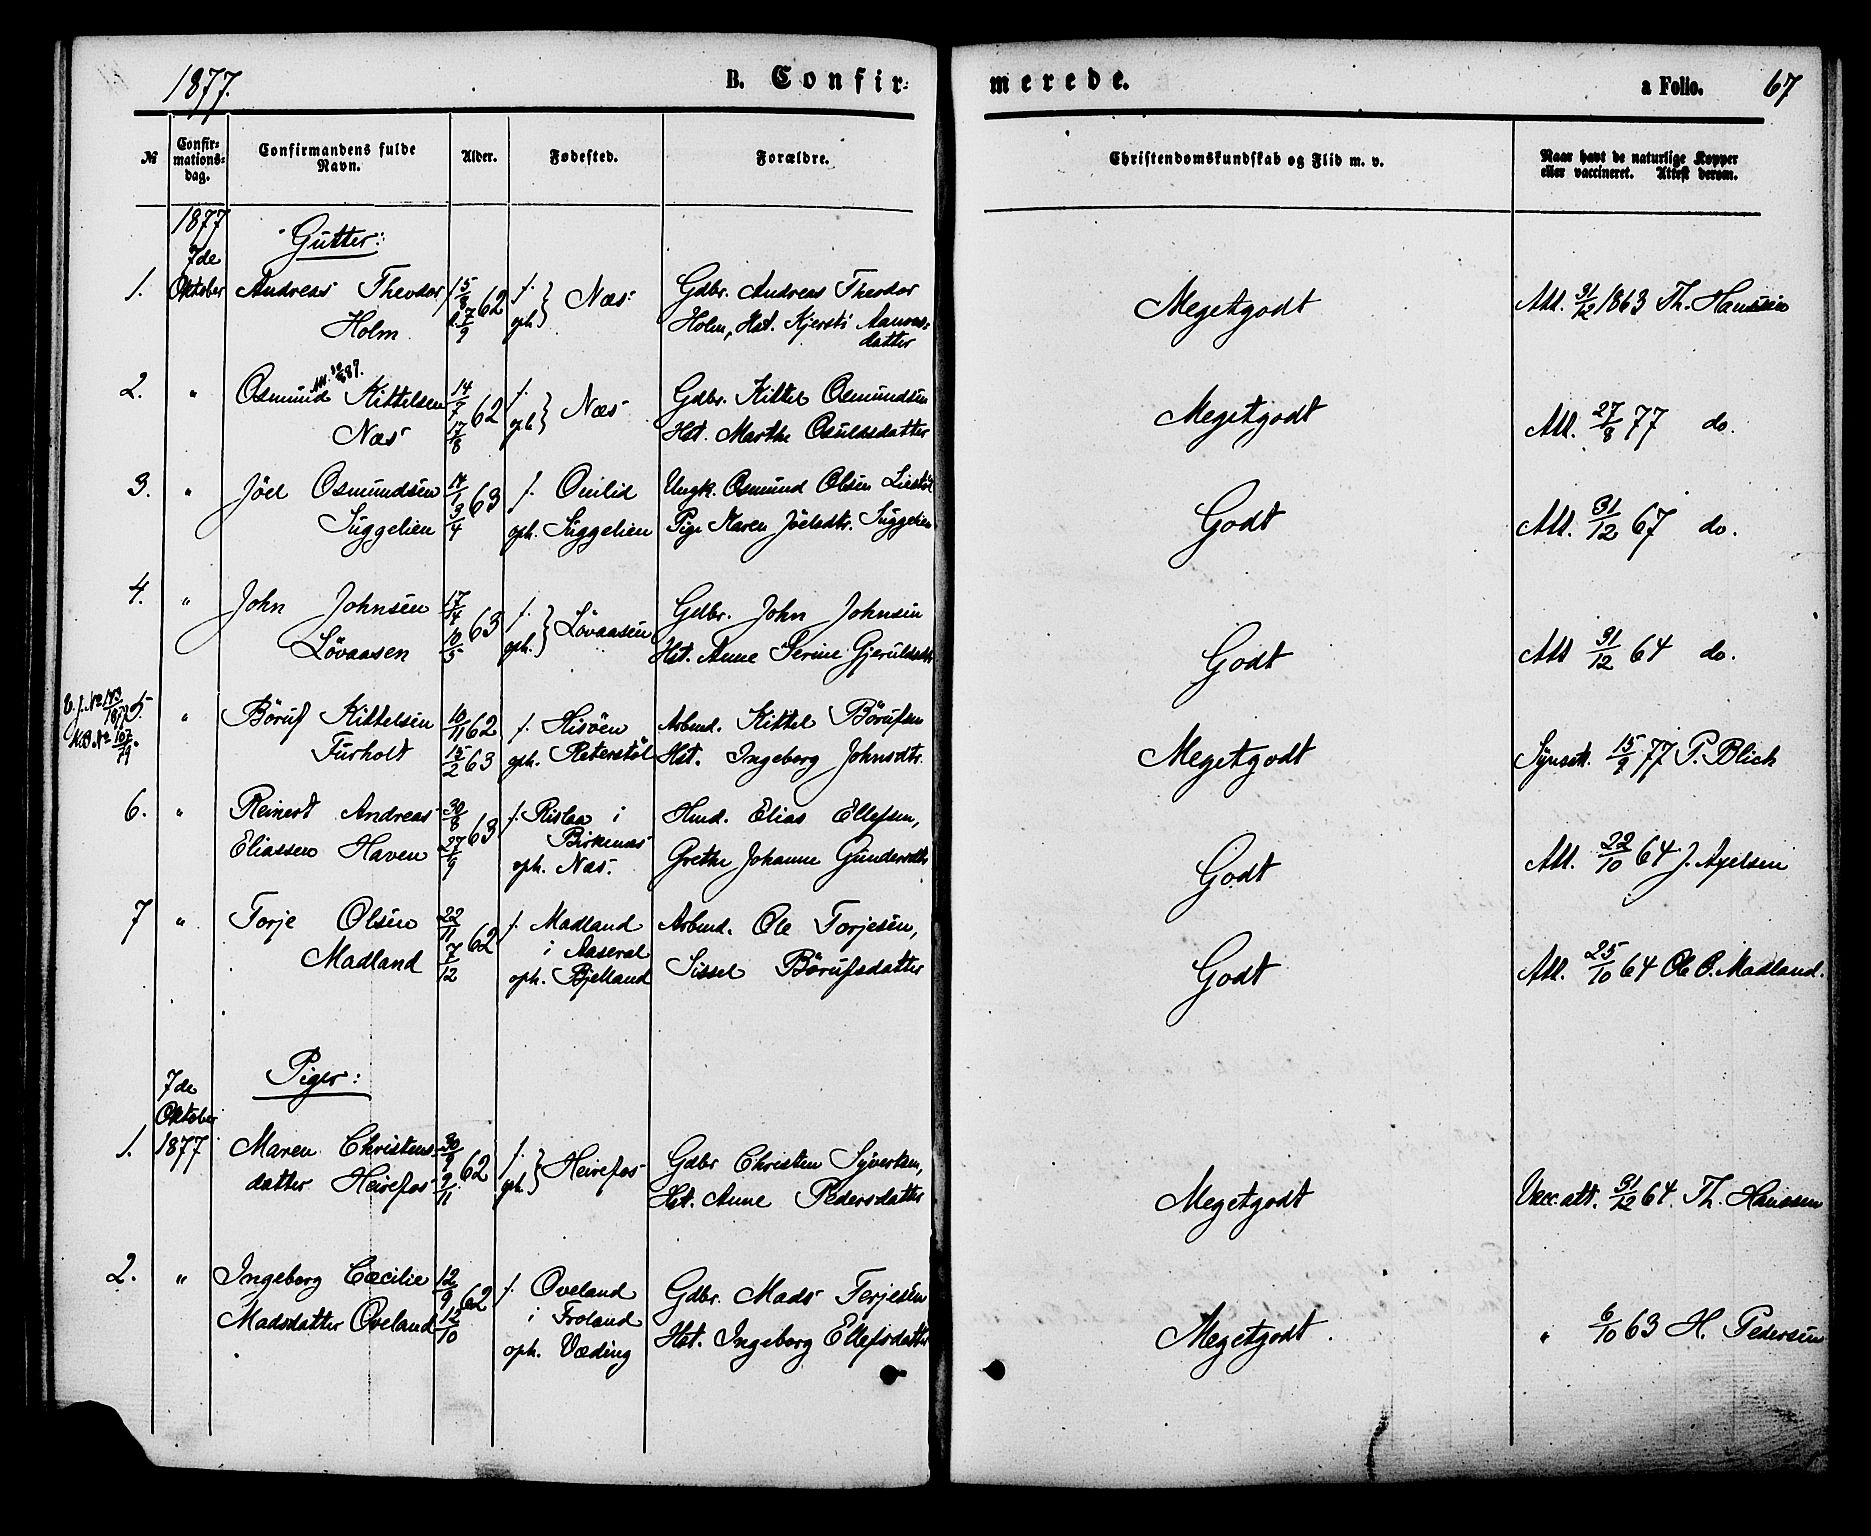 1877.
B. Confirmerede.
a Folio. 67
№
Confirmations-dag.
Confirmandens fulde Navn.
Alder.
Fødested.
Forældre.
Christendomskundskab og Flid m. v.
Naar havt de naturlige Kopper eller vaccineret. Attest derom.
1877
7de
Oktober
Gutter:
1.
Andreas Theodor
Holm
15/8 62
7/9
f.
oph. } Næs
Gdbr. Andreas Theodor
Holm, Hst. Kjersti Aanons-
datter
Megetgodt
Att. 31/12 1863 Th. Hanssen
2. "
Osmund Kittelsen
Næs
14/7 62
17/8
f.
oph } Næs
Gdbr. Kittel Osmundsen
Hst. Marthe Osuldsdatter
Megetgodt
Att. 27/8 77 do.
3. "
Jöel Osmundsen
Suggelien
14/1 63
3/4
f. Omlid
oph. Suggelien
Ungk. Osmund Olsen Liestöl
Pige Maren Jöelsdtr. Suggelien
Godt
Att. 31/12 67 do.
4. "
John Johnsen
Lövaasen
17/4 63
10/5
f.
oph. } Lövaasen
Gdbr. John Johnsen
Hst. Anne Serine Gjeruldsdtr
Godt
Att 31/12 64 do.
5. "
Böruf Kittelsen
Furholt
10/11 62
15/2 63
f. Hisöen
oph. Reierstöl
Arbmd. Kittel Börufsen
Hst. Ingeborg Johnsdtr.
Megetgodt
Synsatt. 15/9 77 P. Blich
6. "
Reinert Andreas
Eliassen Haven
30/8 63
27/9
f. Rislaa i
Birkenæs
oph. Næs.
Hmd. Elias Ellefsen,
Grethe Johanne Gundersdtr
Godt
Att. 22/10 64 J. Axelsen
7 "
Torje Olsen
Madland
22/11 62
7/12
f. Madland
i Aaseral
oph. Bjelland
Arbmd. Ole Torjesen,
Sissel Börufsdatter
Godt
Att. 25/10 64 Ole O. Madland.
Piger:
7de
Oktober
1. 1877
Maren Christens-
datter Heirefos
30/9 62
9/11
f.
oph. } Heirefos
Gdbr Christen Syvertsen,
Hst. Anne Pedersdatter
Megetgodt
Vacc. att. 31/12 64. Th. Hanssen
2. "
Ingeborg Cæcilie
Madsdatter Oveland
12/9 62
12/10
f. Oveland
i Froland
oph. Væding
Gdbr. Mads Terjesen
Hst. Ingeborg Ellefsdatter
Megetgodt.
" 6/10 63 H. Pedersen